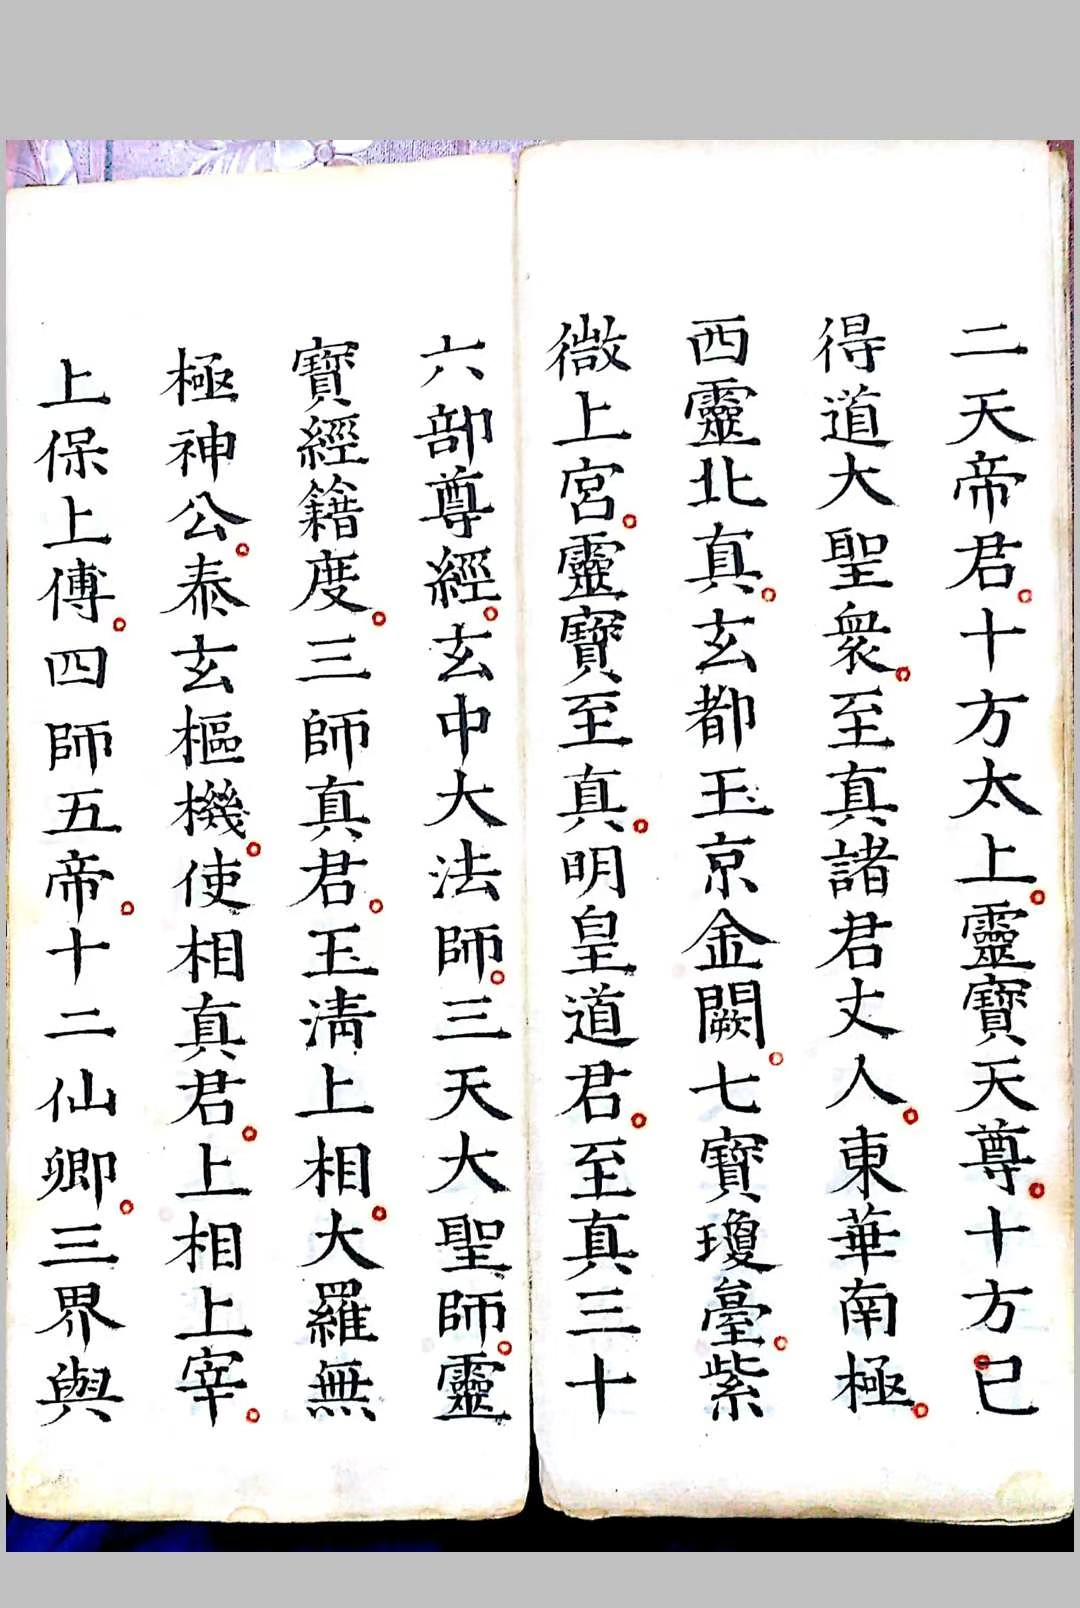 二天帝君。十方太上。靈寶天尊。十方已
得道大聖衆。至真諸君丈人。東華南極。
西靈北真。玄都玉京金闕。七寶瓊臺。紫
微上宮。靈寶至真。明皇道君。至真三十
六部尊經。玄中大法師。三天大聖師。靈
寶經籍度。三師真君。玉清上相。大羅無
極神公。泰玄樞機。使相真君。上相上宰。
上保上傅。四師五帝。十二仙卿。三界與